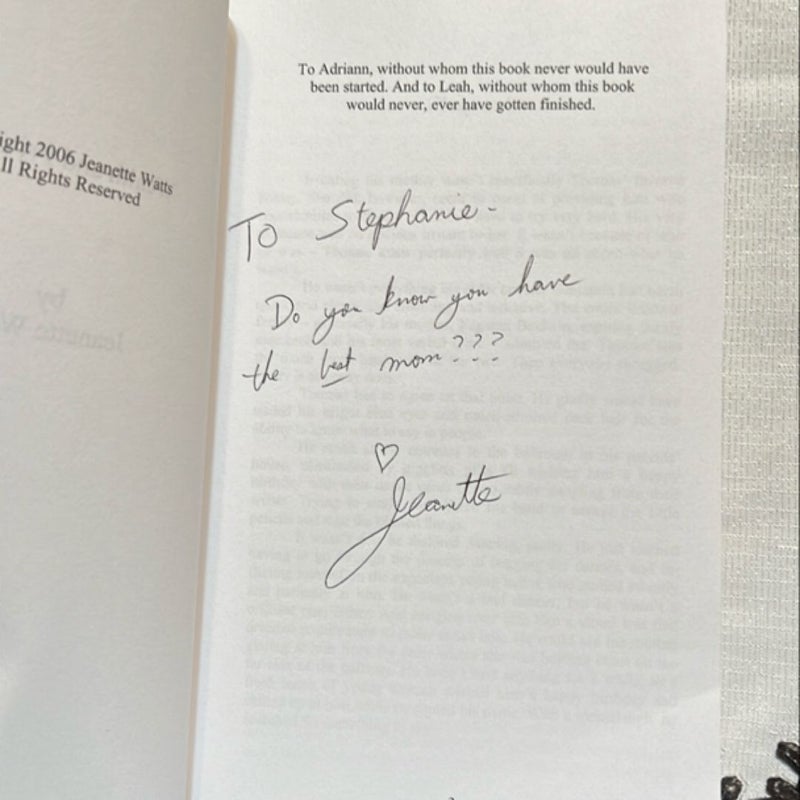 ight 2006 Jeanette Watts
ll Rights Reserved
To Adriann, without whom this book never would have
been started. And to Leah, without whom this book
would never, ever have gotten finished.
To Stephanie -
Do you know you have
the best mom???
♡
Jeanette